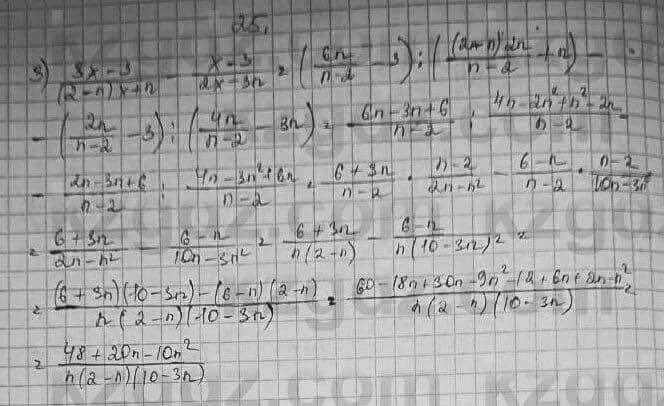 25.
3) (3x-3)/((2-n)x+n) - (x-3)/(2x-3n) = (6n/(n-2) - 3) : ((2-n)2n/(n-2) + n) -
- (2n/(n-2) - 3) : (4n/(n-2) - 3n) = (6n-3n+6)/(n-2) : (4n-2n²+n²-2n)/(n-2) -
- (2n-3n+6)/(n-2) : (4n-3n²+6n)/(n-2) = (6+3n)/(n-2) · (n-2)/(2n-n²) - (6-n)/(n-2) · (n-2)/(10n-3n²)
= (6+3n)/(2n-n²) - (6-n)/(10n-3n²) = (6+3n)/(n(2-n)) - (6-n)/(n(10-3n)) =
= ((6+3n)(10-3n)-(6-n)(2-n))/(n(2-n)(10-3n)) = (60-18n+30n-9n²-12+6n+2n-n²)/(n(2-n)(10-3n)) =
= (48+20n-10n²)/(n(2-n)(10-3n))